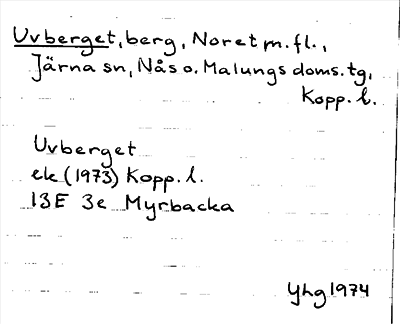 Uvberget, berg, Noret m.fl.,
Järna sn, Nås o. Malungs doms.tg,
Kopp. l.
Uvberget
ek (1973) Kopp. l.
13E 3e Myrbacka
Yhg 1974